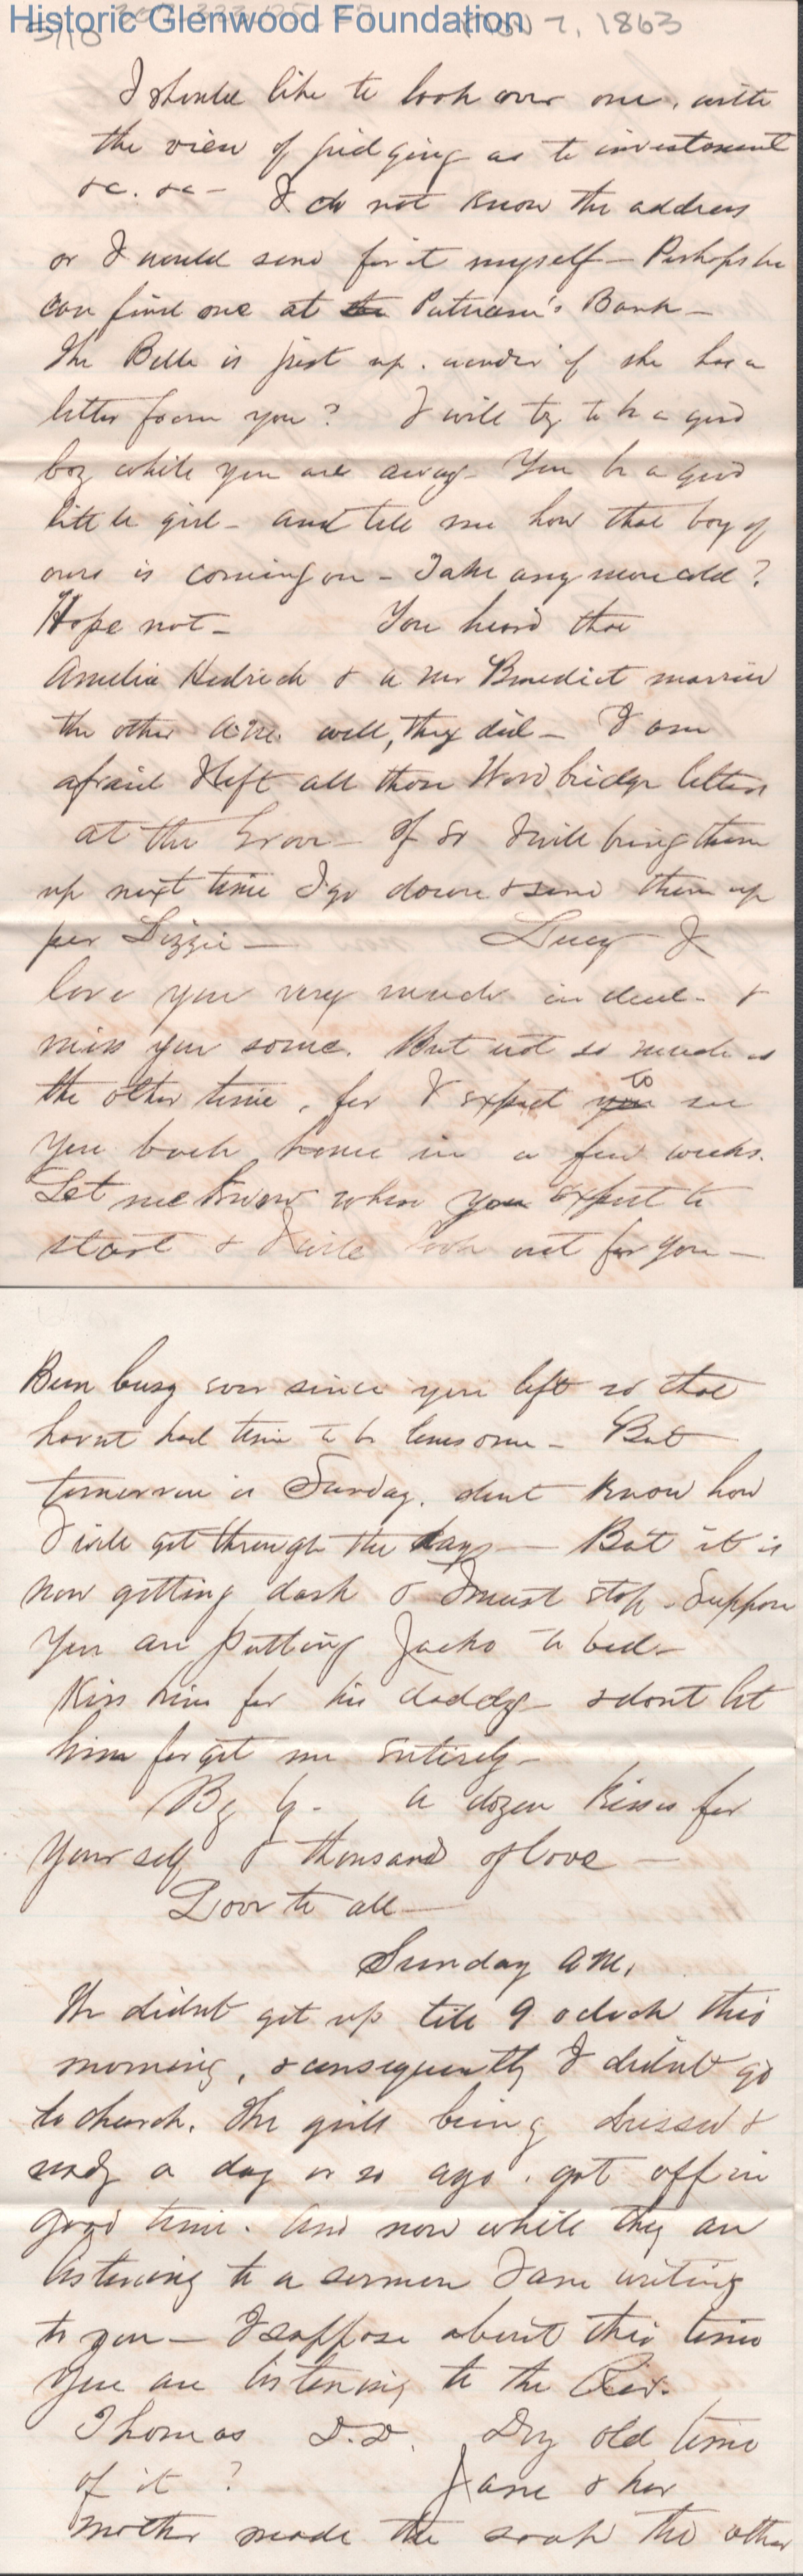 Historic Glenwood Foundation
Nov 7, 1863
5/10
I should like to look over one, with
the view of judging as to investment
&c. &c - I do not know the address
or I would send for it myself - Perhaps he
can find one at the Putnam's Bank -
The Belle is just up. wonder if she has a
letter from you? I will try to be a good
boy while you are away - You be a good
little girl - and tell me how that boy of
ours is coming on - Take any more cold?
Hope not - You heard that
Amelia Hedrick & a Mr Benedict married
the other well, they did - I am
afraid I left all those Woodbridge letters
at the Grove - If so I will bring them
up next time I go down & send them up
per Lizzie - Lucy I
love you very much indeed - &
miss you some. But not so much as
the other time, for I expect you to see
you back home in a few weeks.
Let me know when you expect to
start & I will look out for you -
Been busy ever since you left so that
havnt had time to be lonesome - But
tomorrow is Sunday. dont know how
I will get through the days - But it is
now getting dark & I must stop - Suppose
you are putting Jacko to bed -
Kiss him for his daddy - & dont let
him forget me entirely -
By By - a dozen kisses for
yourself & thousand of love -
Love to all -
Sunday AM,
We didnt get up till 9 oclock this
morning, & consequently I didnt go
to church. The girls being dressed &
ready a day or so ago, got off in
good time. And now while they are
listening to a sermon I am writing
to you - I suppose about this time
you are listening to the Rev.
Thomas D.D. Dry old time
of it? Jane & her
mother made the soap the other